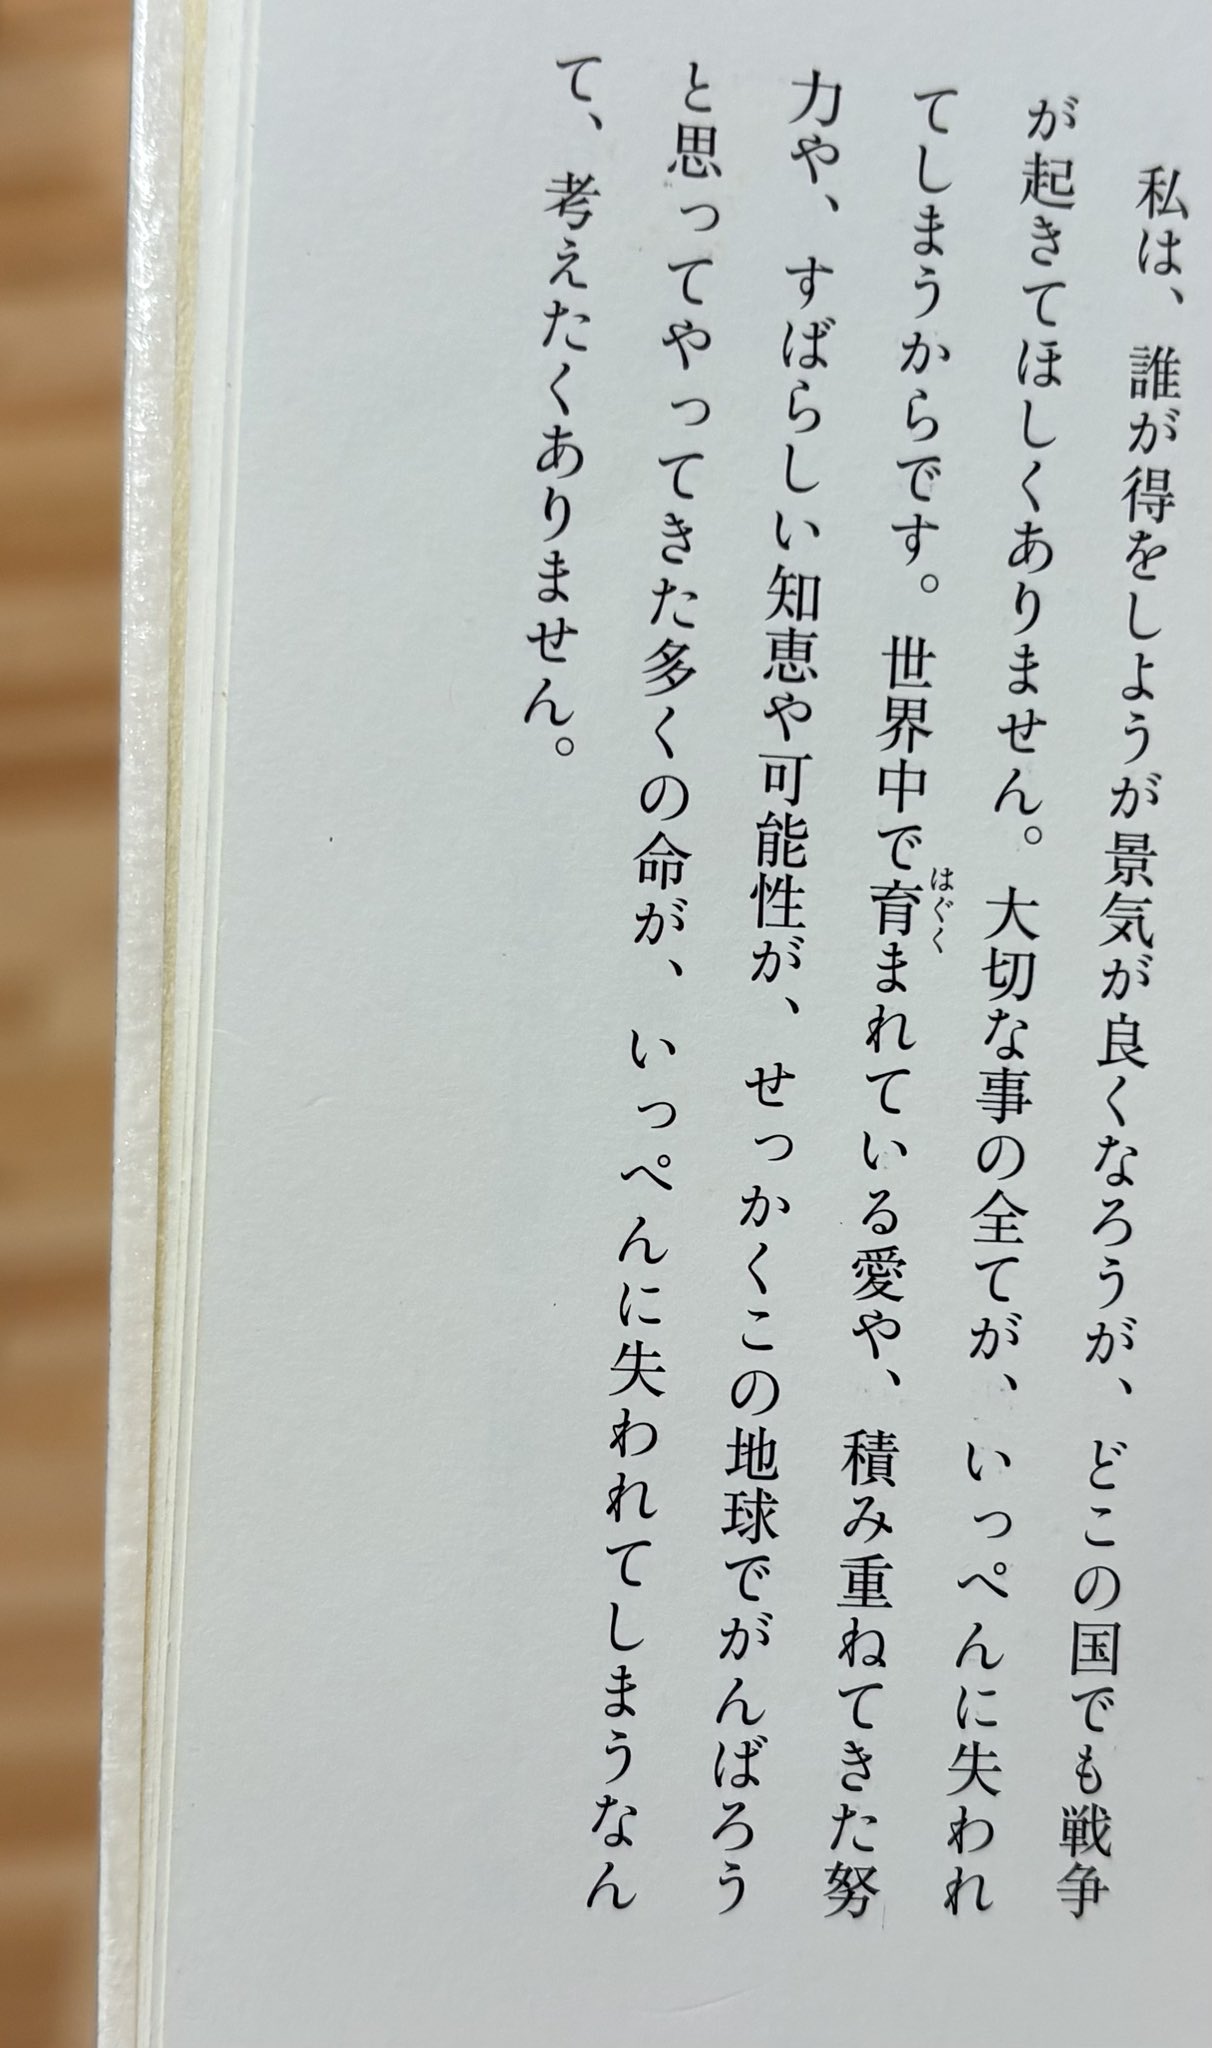 私は、誰が得をしようが景気が良くなろうが、どこの国でも戦争
が起きてほしくありません。大切な事の全てが、いっぺんに失われ
てしまうからです。世界中で育まれている愛や、積み重ねてきた努
はぐく
力や、すばらしい知恵や可能性が、せっかくこの地球でがんばろう
と思ってやってきた多くの命が、いっぺんに失われてしまうなん
て、考えたくありません。